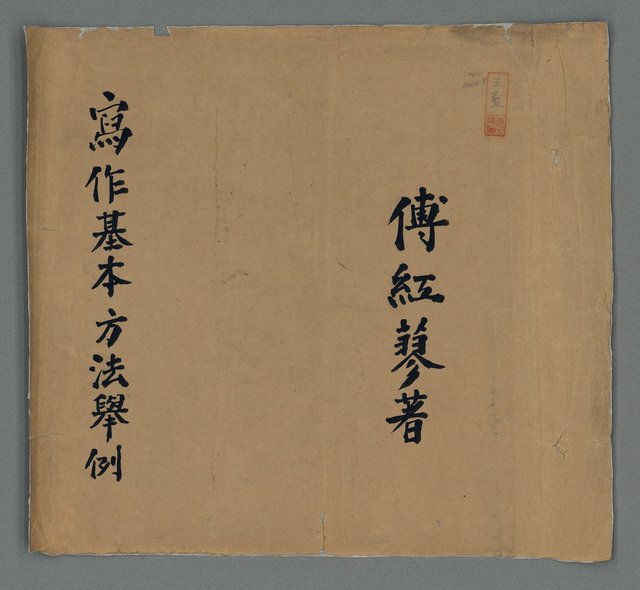 傅紅蓼著
寫作基本方法舉例